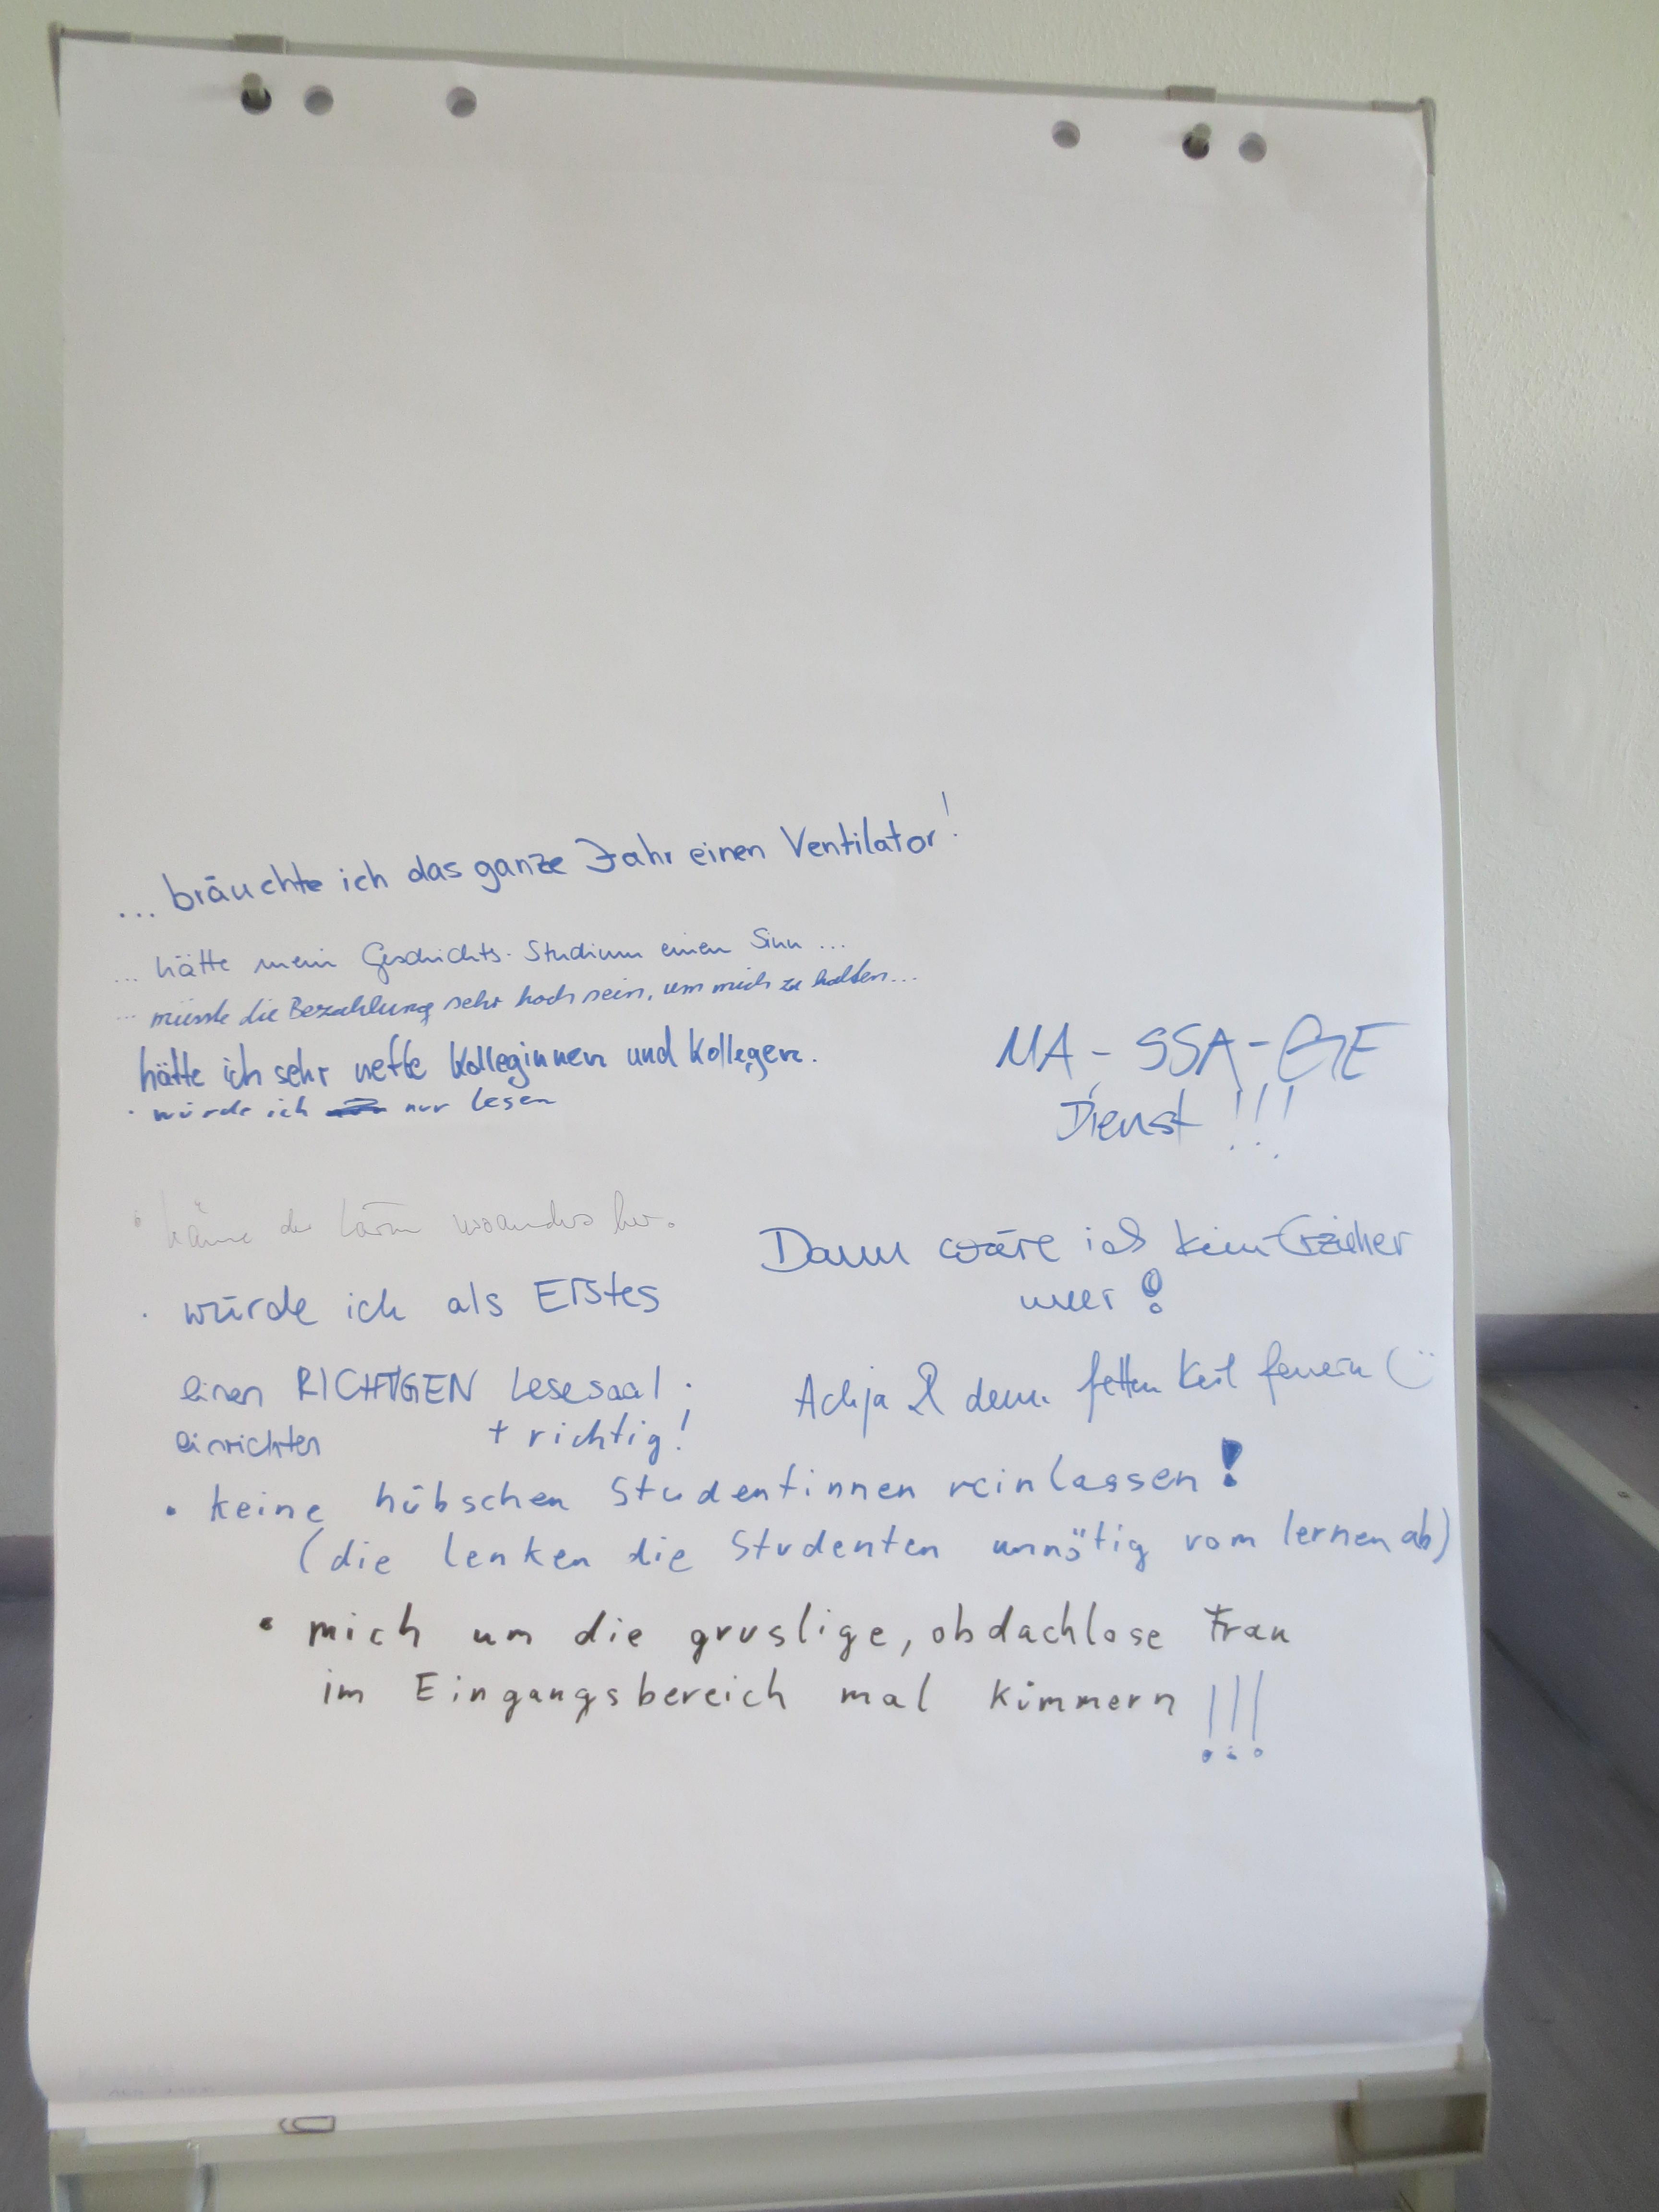 ... bräuchte ich das ganze Jahr einen Ventilator!
... hätte mein Geschichts-Studium einen Sinn ...
... müsste die Bezahlung sehr hoch sein, um mich zu halten...
hätte ich sehr nette Kolleginnen und Kollegen.
· würde ich nur lesen
MA-SSA-GE
Dienst!!!
· käme der Lärm woanders her.
Dann wäre ich kein Erzieher
meer!
· würde ich als Erstes
einen RICHTIGEN Lesesaal.
einrichten + richtig!
Achja & dem fetten Keil feuern (¨
• keine hübschen Studentinnen reinlassen!
(die lenken die Studenten unnötig vom lernen ab)
• mich um die gruslige, obdachlose Frau
im Eingangsbereich mal kümmern !!!